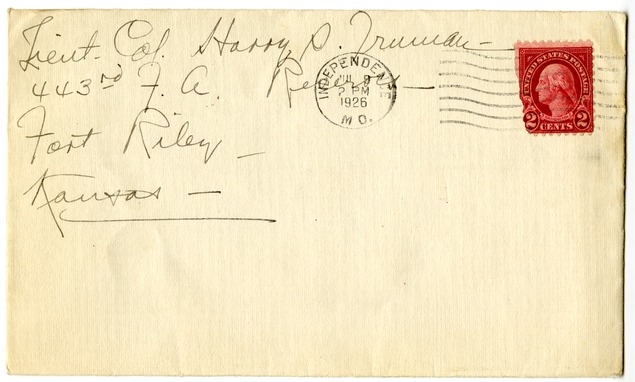 Lieut. Col. Harry S. Truman —
443rd F. A. Res —
Fort Riley —
Kansas —
INDEPENDENCE
JUL 9
2 PM
1926
MO.
UNITED STATES POSTAGE
2 CENTS 2